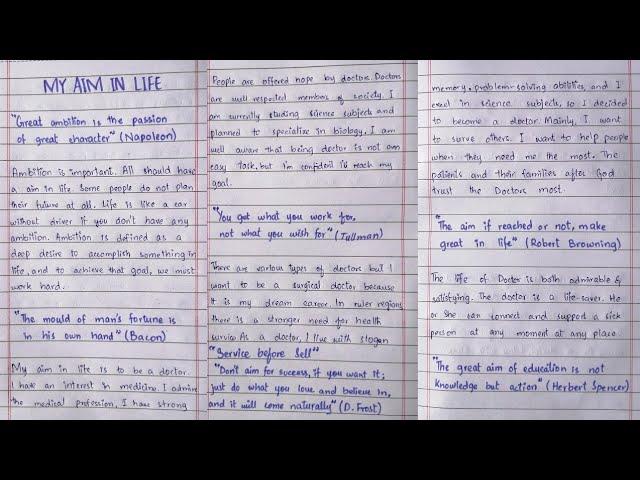 MY AIM IN LIFE
"Great ambition is the passion
of great character" (Napoleon)
Ambition is important. All should have
a aim in life. Some people do not plan
their future at all. Life is like a car
without driver if you don't have any
ambition. Ambition is defined as a
deep desire to accomplish something in
life, and to achieve that goal, we must
work hard.
"The mould of man's fortune is
in his own hand" (Bacon)
My aim in life is to be a doctor.
I have an interest in medicine. I admire
the medical profession, I have strong
People are offered hope by doctors. Doctors
are well respected members of society. I
am currently studing science subjects and
planned to specialize in biology. I am
well aware that being doctor is not an
easy task, but I'm confident to reach my
goal.
"You get what you work for,
not what you wish for" (Tullman)
There are various types of doctors but I
want to be a surgical doctor because
it is my dream career. In ruler regions
there is a stronger need for health
survice. As a doctor, I live with slogen
"Service before Self"
"Don't aim for success, if you want it;
just do what you love and believe in,
and it will come naturally" (D. Frost)
memory, problem-solving abilities, and I
excel in science subjects, so I decided
to become a doctor. Mainly, I want
to surve others. I want to help people
when they need me the most. The
patients and their families after God
trust the Doctors most.
"The aim if reached or not, make
great in life" (Robert Browning)
The life of Doctor is both admirable &
satisfying. The doctor is a life-saver. He
or She can connect and support a sick
person at any moment at any place.
"The great aim of education is not
knowledge but action" (Herbert Spencer)